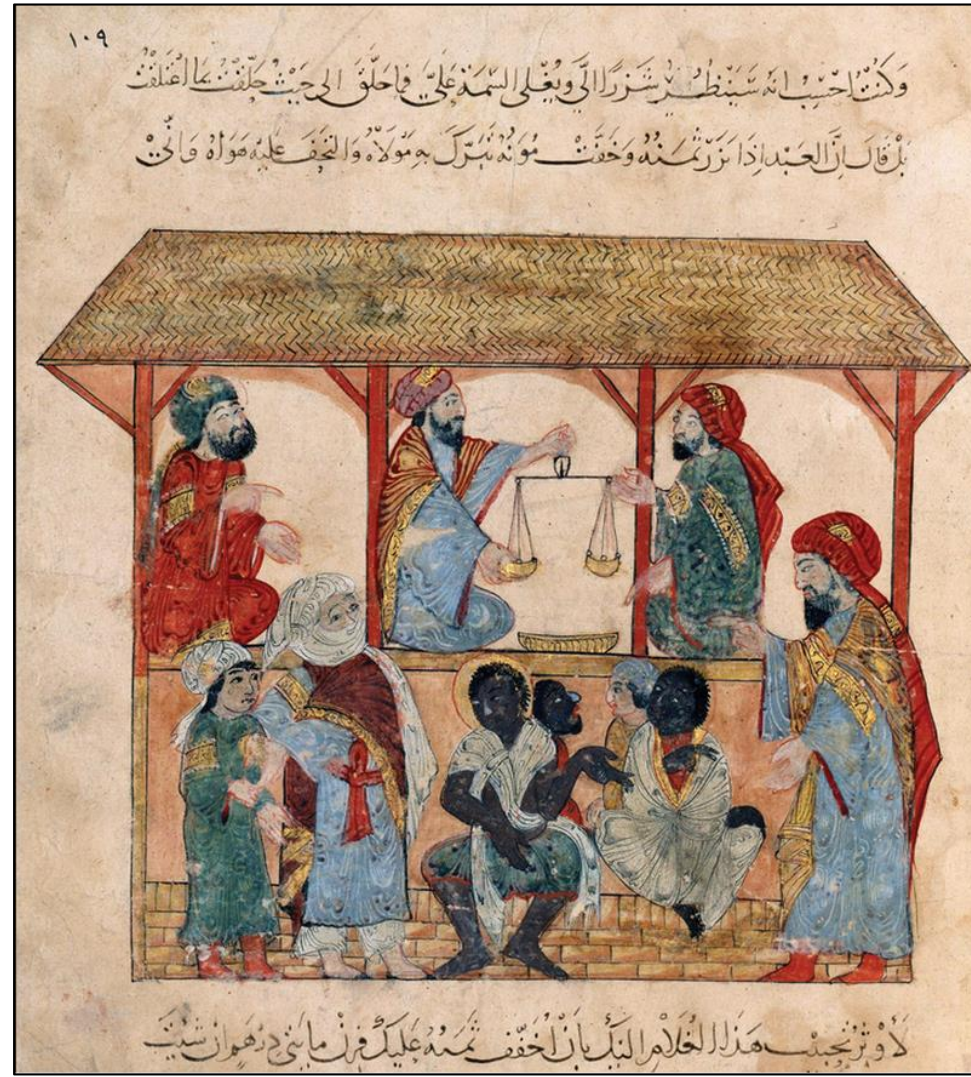 ١٠٩
وَكُنْتُ اَحْسِبُ انهُ سَيَنْظُرُ شَزَرًا اليَّ ويُغْلى السِّمَةَ عَلَيَّ فما حَلَّقَ الى حَيْثُ حَلَّقْتُ بما اعْتَلَقْتُ
بَلْ قَالَ اِنَّ العَبْدَ اِذَا نَزَرَ ثمَنُهُ وَخَفَّتْ مُونُهُ تَبَرَّكَ بِهِ مَوْلَاهُ وَالتَحَفَ عَلَيْهِ هَوَاهُ وَاِنّيْ
لَاُوْثِرُ تَحْبِيْبَ هَذَا الغُلَامِ اليْكَ بِاَنْ اُخَفِّفَ ثَمَنُهُ عَلَيْكَ فَزِنْ مايتى دِرْهَمٍ اِنْ شِئْتَ